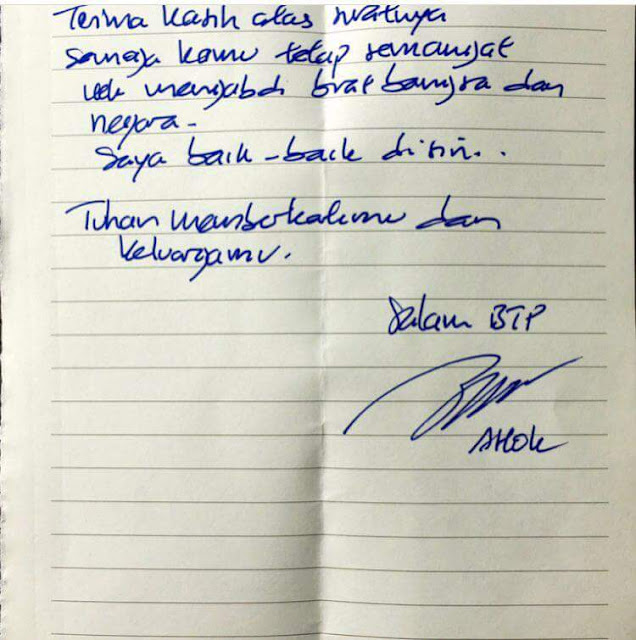 Terima kasih atas suratnya
Semoga kamu tetap semangat
utk mengabdi buat bangsa dan
negara -
Saya baik - baik disini..
Tuhan memberkatimu dan
keluargamu.
Salam BTP
AHok